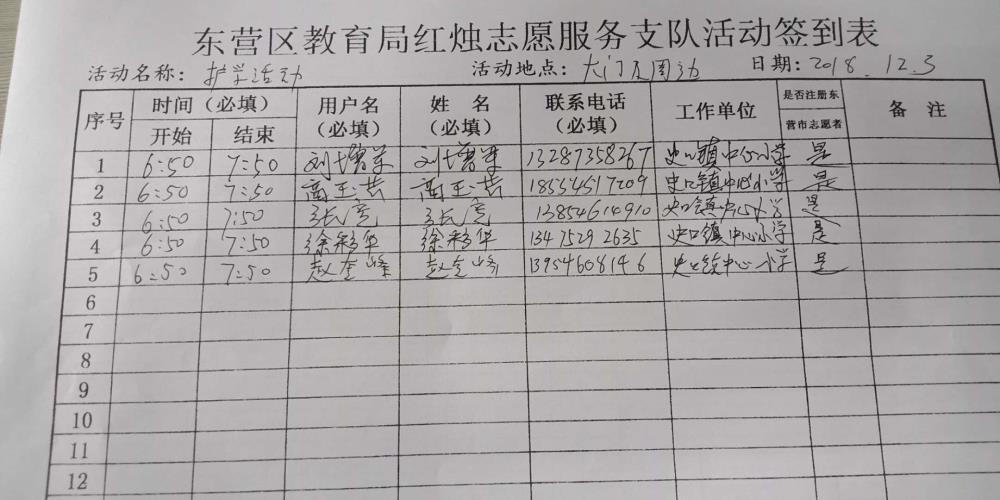 东营区教育局红烛志愿服务支队活动签到表
活动名称: 护学活动 活动地点: 大门及周边 日期: 2018.12.3
序号 时间（必填） 用户名（必填） 姓名（必填） 联系电话（必填） 工作单位 是否注册东营市志愿者 备注
开始 结束
1 6:50 7:50 13287358267 史口镇中心小学 是
2 6:50 7:50 18554517209 史口镇中心小学 是
3 6:50 7:50 张亮 张亮 13854614910 史口镇中心小学 是
4 6:50 7:50 徐彩华 徐彩华 13475292635 史口镇中心小学 是
5 6:50 7:50 赵奎峰 赵奎峰 13954608146 史口镇中心小学 是
6
7
8
9
10
11
12